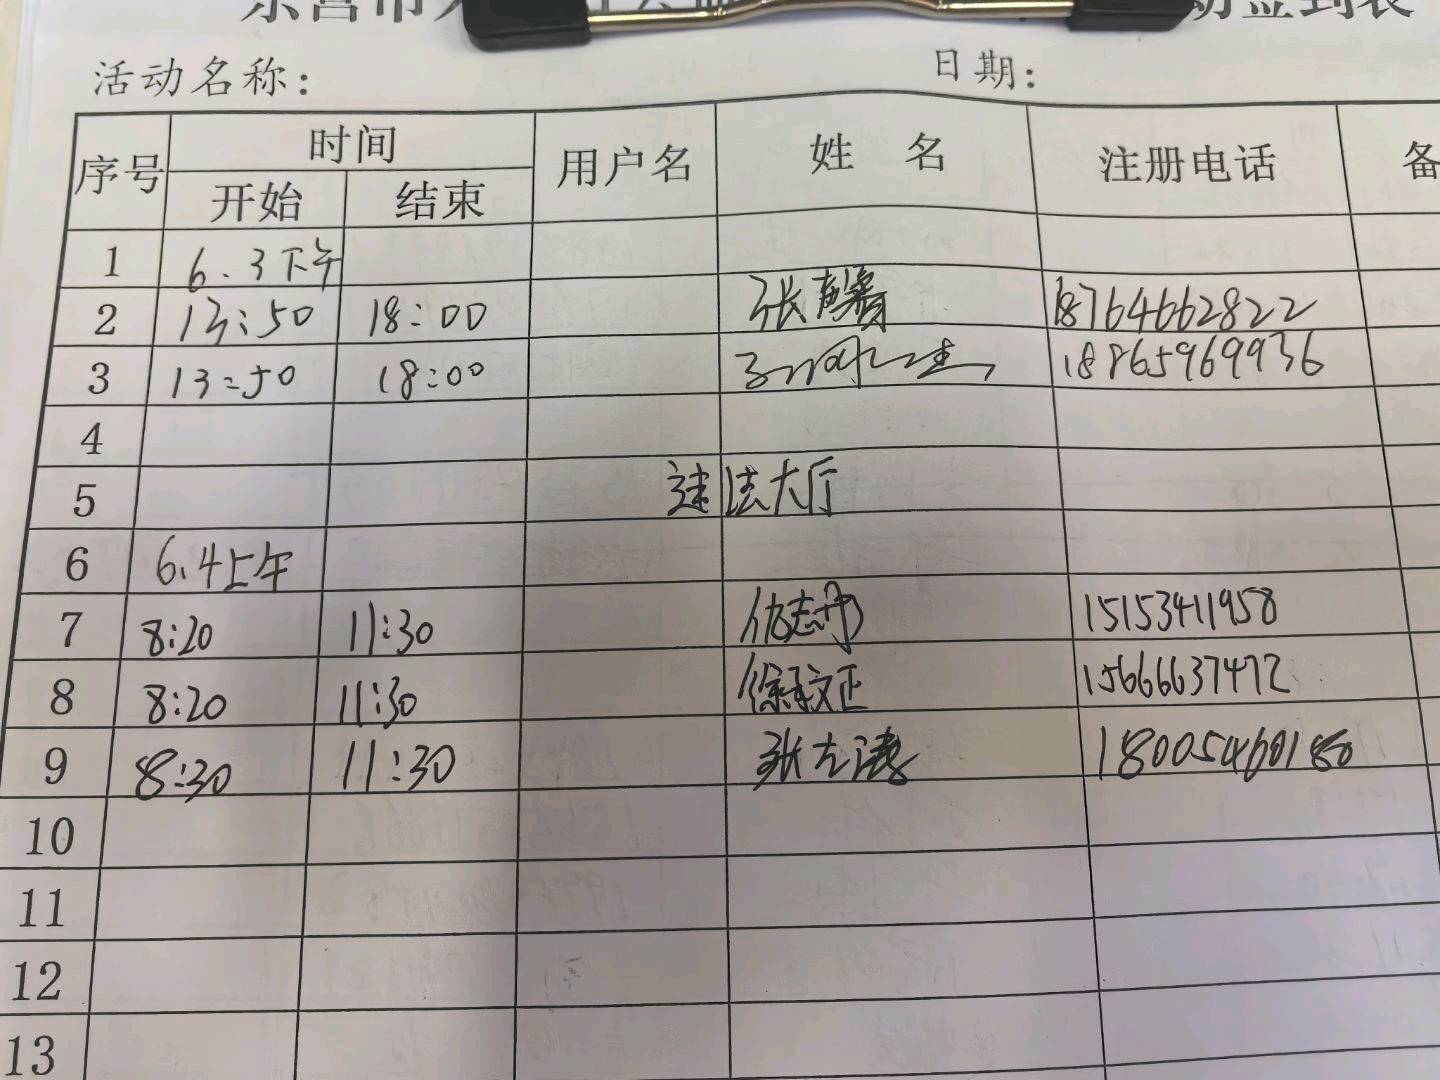 活动名称: 日期:
序号 时间 用户名 姓 名 注册电话 备
开始 结束
1 6.3下午
2 13:50 18:00 张 18764662822
3 13:50 18:00 18865969936
4
5 违法大厅
6 6.4上午
7 8:20 11:30 仇志丹 15153411958
8 8:20 11:30 徐文正 15666637472
9 8:30 11:30 张志涛
10
11
12
13